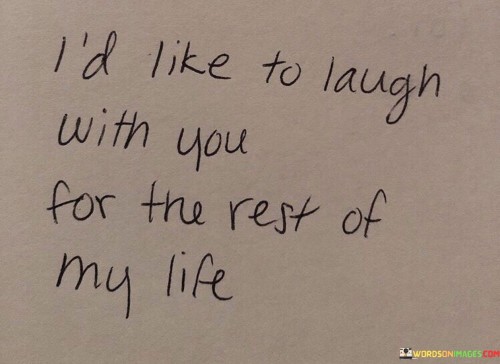 I'd like to laugh
with you
for the rest of
my life
WORDSONIMAGES.COM